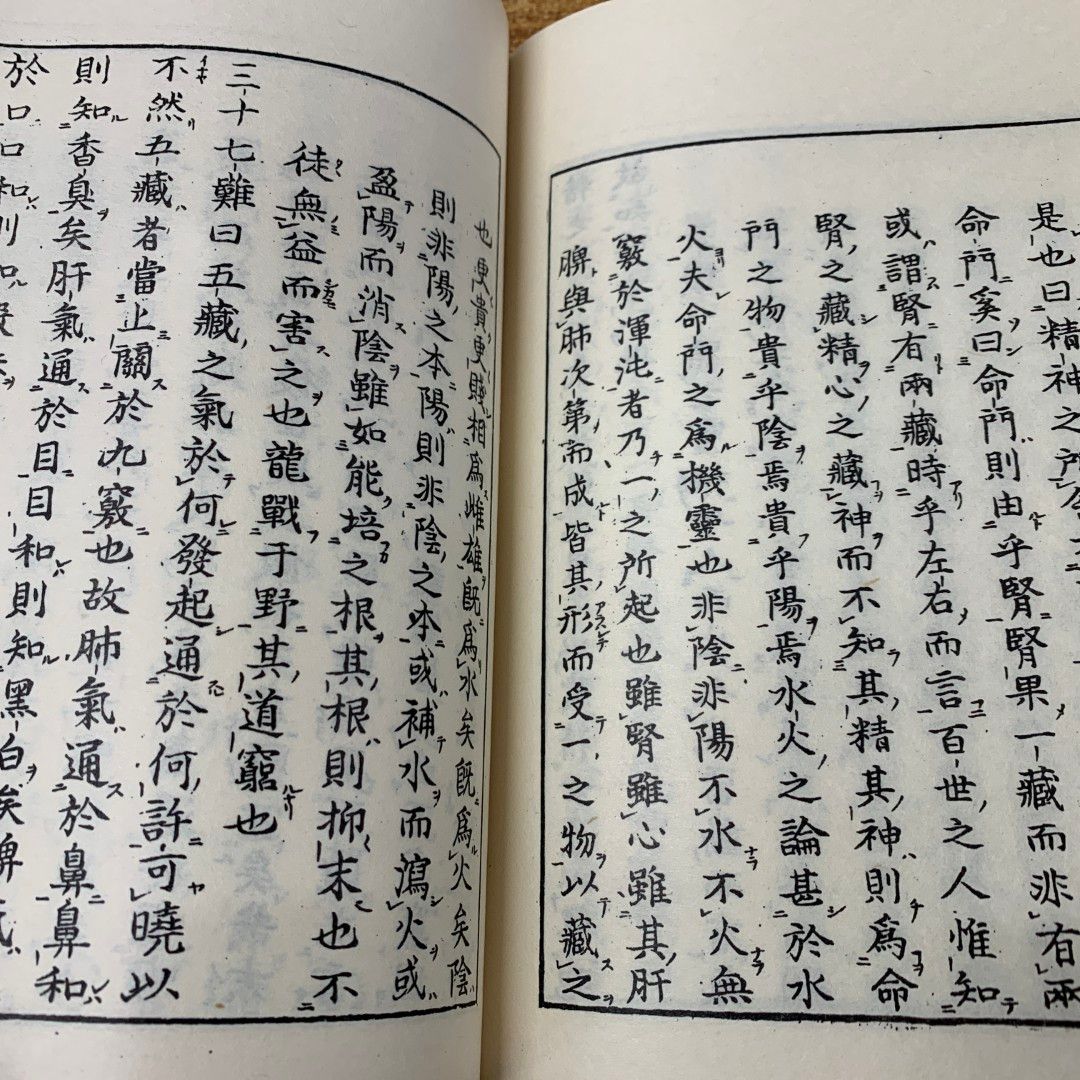 是也曰精神之所
命門奚曰命門則由乎腎腎果一藏而非有兩
或謂腎有兩藏時乎左右而言百世之人惟知
腎之藏精心之藏神而不知其精其神則為命
門之物貴乎陰焉貴乎陽焉水火之論甚於水
火夫命門之為機靈也非陰非陽不水不火無
竅於渾沌者乃一之所起也雖腎雖心雖其肝
脾與肺次第而成皆其形而受一之物以藏之
也更貴更賤相為雌雄既為水矣既為火矣陰
則非陽之本陽則非陰之本或補水而瀉火或
盈陽而消陰雖如能培之根其根則抑末也不
徒無益而害之也龍戰于野其道窮也
三十七難曰五藏之氣於何發起通於何許可曉以
不然五藏者當上關於九竅也故肺氣通於鼻鼻和
則知香臭矣肝氣通於目目和則知黑白矣脾氣
於口口和則知